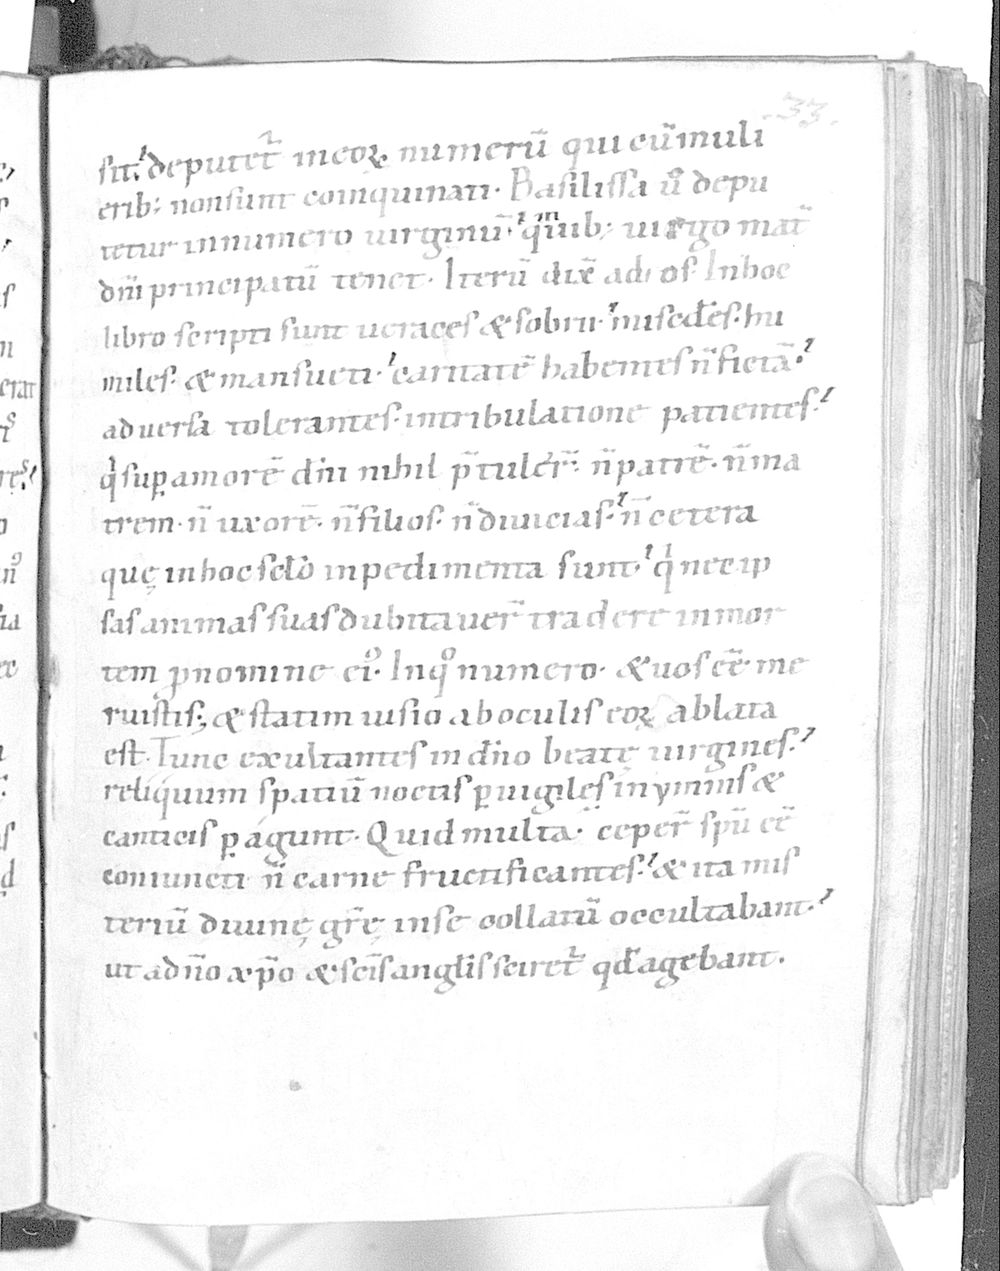 .33.
sit. deputet᷑ in eoꝝ numerū qui cū muli
erib; non sunt coinquinati. Basilissa ů depu
tetur in numero uirginū. qͥnib; uirgo mat̄
dn̄i principatū tenet. Iterū dix̄ ad os. In hoc
libro scripti sunt ueraces & sobrii. misc̄des. hu
miles. & mansueti. caritatē habentes n̄ fictā.
aduersa tolerantes. in tribulatione patientes.
qͥ suꝑ amorē dn̄i nihil p̄tuler̄. n̄ patrē. n̄ ma
trem. n̄ uxorē. n̄ filios. n̄ diuicias. n̄ cetera
quę in hoc sc̄lo inpedimenta sunt. qͥ nec ip
sas animas suas dubitauer̄ tradere in mor
tem ꝓ nomine ei᷒. In qͦ numero. & uos eē me
ruistis; & statim uisio ab oculis eoꝝ ablata
est. Tunc exultantes in dn̄o beatę uirgines.
reliquum spatiū noctis ꝑuigiles in ymnis &
canticis ꝑagunt. Quid multa. ceper̄ sp̄u eē
coniuncti n̄ carne fructificantes. & ita mis
teriū diuinę gr̄ę in se collatū occultabant.
ut a dn̄o xp̄o & sc̄is angl̄is sciret᷑ qd̄ agebant.